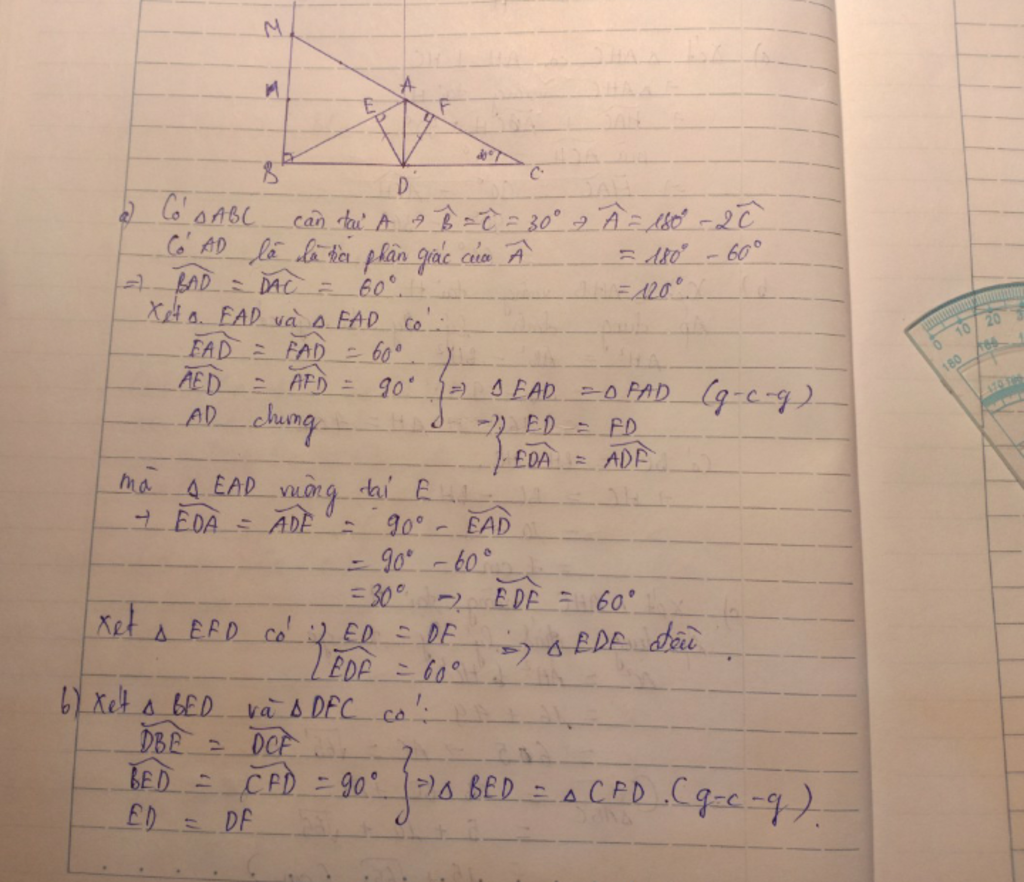 M
M
A
E
F
B
30°
C
D
a) Có △ABC cân tại A → B̂ = Ĉ = 30° → Â = 180° - 2Ĉ
Có AD là là tia phân giác của Â = 180° - 60°
⇒ BAD = DAC = 60°. = 120°
Xét △ EAD và △ FAD có:
EAD = FAD = 60°.
AED = AFD = 90° ⇒ △ EAD = △ FAD (g-c-g)
AD chung ⇒ ED = FD
EDA = ADF
mà △ EAD vuông tại E
→ EDA = ADF = 90° - EAD
= 90° - 60°
= 30° ⇒ EDF = 60°
Xét △ EFD có: ED = DF ⇒ △ EDF đều.
EDF = 60°
b) Xét △ BED và △ DFC có:
DBE = DCF
BED = CFD = 90° ⇒ △ BED = △ CFD. (g-c-g).
ED = DF
0 10 20 3
180